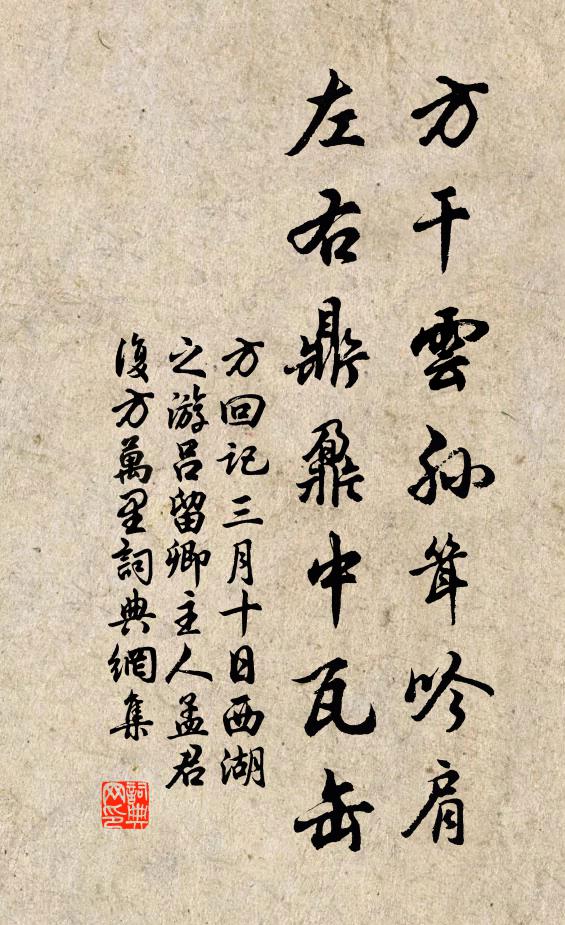 方干雲孫聳吟肩
左右鼎鼐中瓦缶
方回记三月十日西湖
之游吕留卿主人孟君
復方萬里詞典網集
詞典
网印